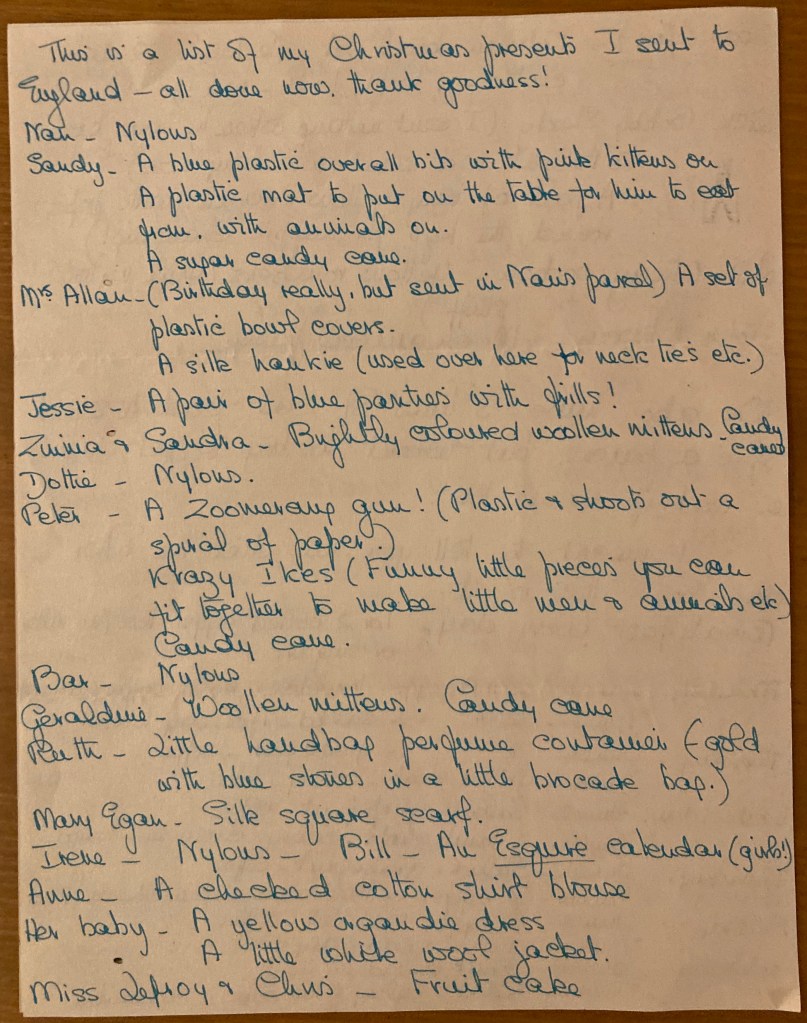 This is a list of my Christmas presents I sent to
England – all done now, thank goodness!
Nan – Nylons
Sandy – A blue plastic overall bib with pink kittens on
A plastic mat to put on the table for him to eat
from, with animals on.
A sugar candy cane.
Mrs Allan – (Birthday really, but sent in Nan's parcel) A set of
plastic bowl covers.
A silk hankie (used over here for neck ties etc.)
Jessie – A pair of blue panties with frills!
Zinnia & Sandra – Brightly coloured woollen mittens. Candy
canes
Dottie – Nylons.
Peter – A Zoomerang gun! (Plastic & shoots out a
spiral of paper.)
Krazy Ikes (Funny little pieces you can
fit together to make little men & animals etc)
Candy cane.
Bar – Nylons
Geraldine – Woollen mittens. Candy cane
Ruth – Little handbag perfume container (gold
with blue stones in a little brocade bag.)
Mary Egan – Silk square scarf.
Irene – Nylons – Bill – An Esquire calendar (girls!)
Anne – A checked cotton shirt blouse
Her baby – A yellow organdie dress
A little white wool jacket.
Miss Lefroy & Chris – Fruit cake